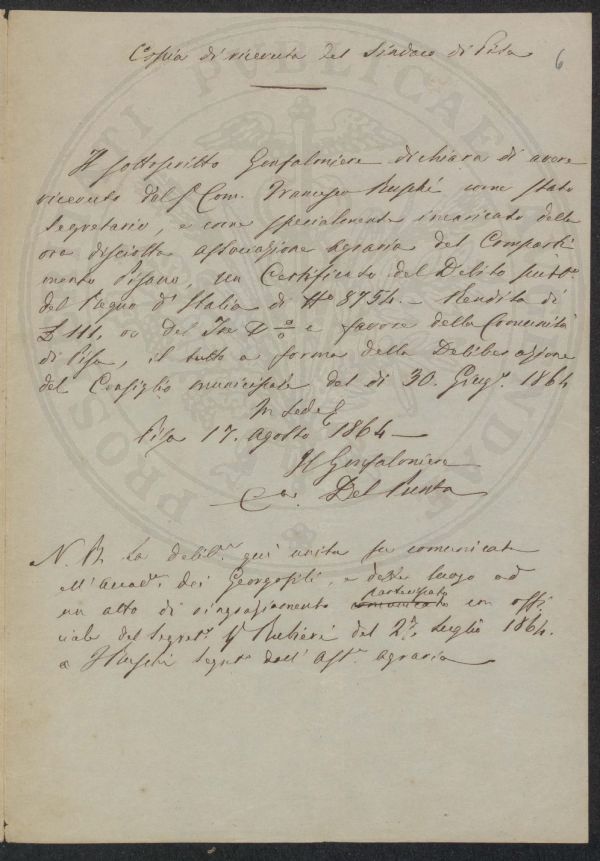 Copia di ricevuta del Sindaco di Pisa
6
Il sottoscritto Gonfaloniere dichiara di avere
ricevuto dal Sr. Com. Francesco come stato
Segretario, e come specialmente incaricato della
ora disciolta associazione Agraria del Comparti
mento Pisano, un Certificato del Debito pubbo.
del Regno d'Italia di No 8754. - Rendita di
£ 111, del Tre a favore della Comunità
di Pisa, il tutto a forma della Deliberazione
del Consiglio municipale del dì 30. Giugo. 1864
In fede
Pisa 17. Agosto 1864 -
Il Gonfaloniere
Del Punta
N. B. La delibne. quì unita fu comunicata
all'Accada. dei Georgofili, e dette luogo ad
partecipato
un atto di ringraziamento comunicato con offi
ciale del Segreto. del 2. Luglio 1864.
a Segreto. dell'Asse. Agraria